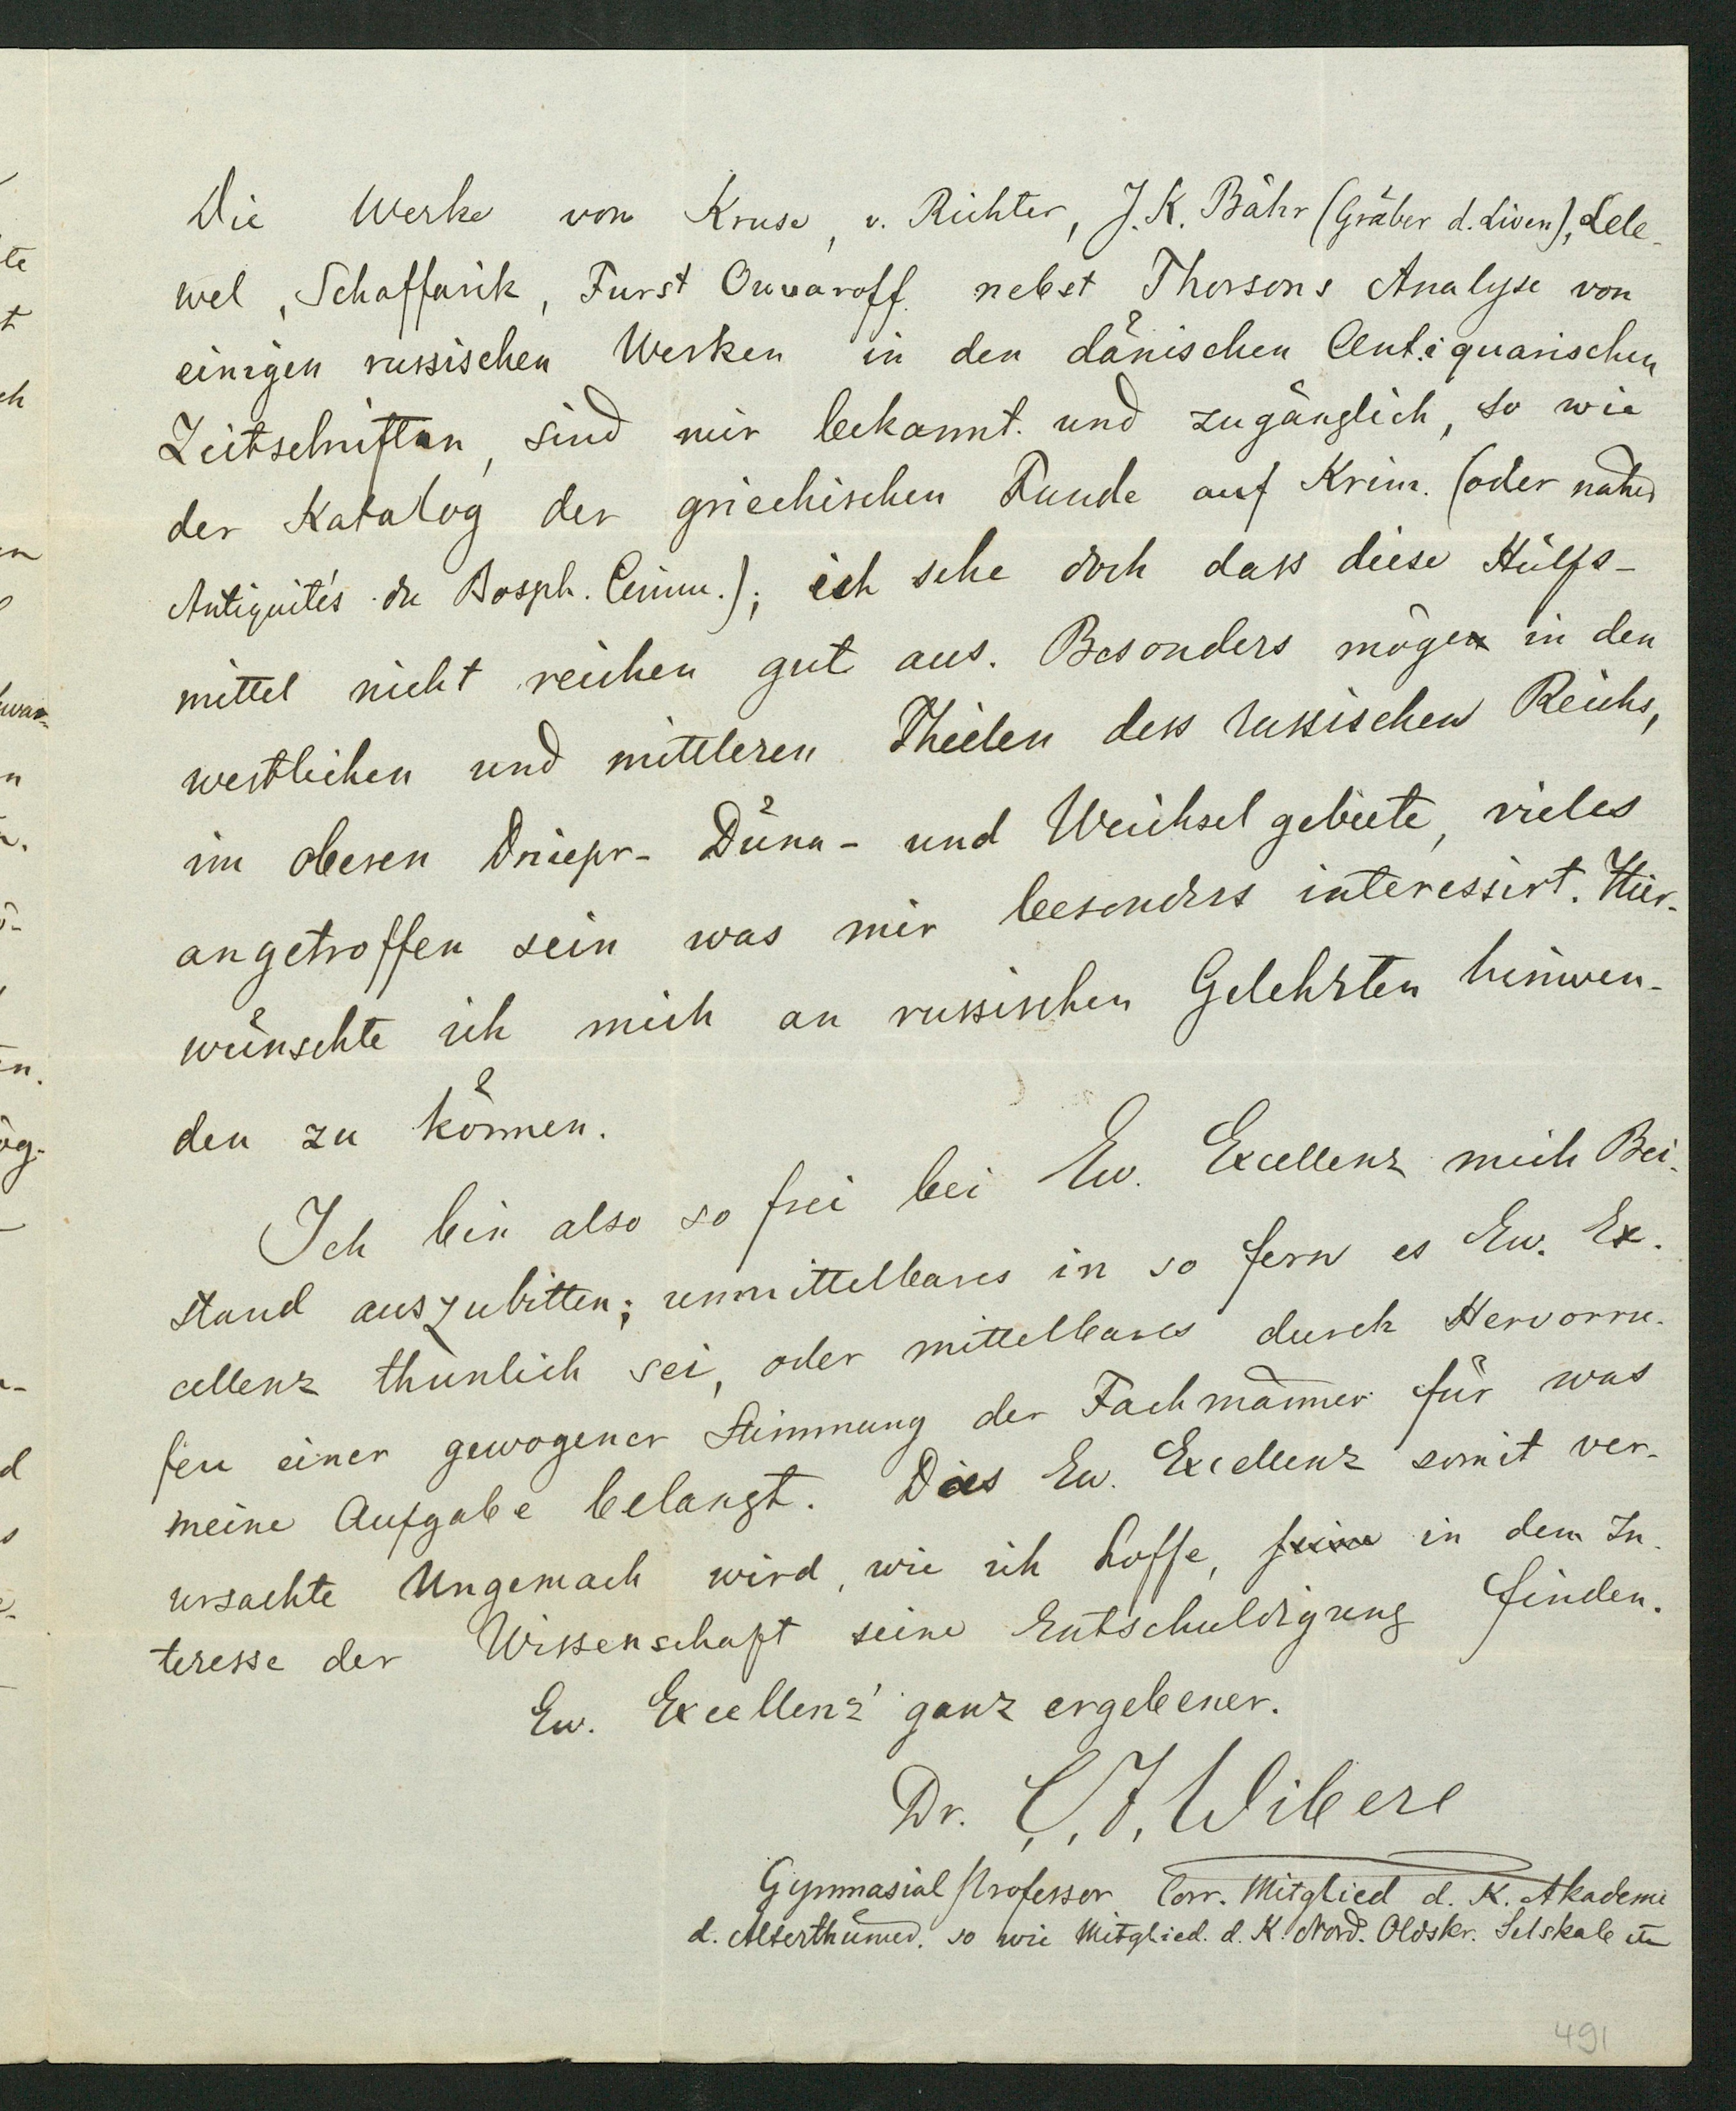 Die Werke von Kruse, v. Richter, J. K. Bähr (Gräber d. Liven), Lele-
wel, Schaffarik, Furst Ouvaroff nebst Thorsons Analyse von
einigen russischen Werken in den dänischen Antiquarischen
Zeitschriften, sind mir bekannt und zugänglich, so wie
der Katalog der griechischen Funde auf Krim. (oder
Antiquités du Bosph. Cimm.); ich sehe doch dass diese Hülfs-
mittel nicht reichen gut aus. Besonders möge in den
westlichen und mittleren Theilen dess russischen Reichs,
im oberen Dniepr- Düna- und Weichselgebiete, vieles
angetroffen sein was mir besonders interessirt. Hier-
wünschte ich mich an russischen Gelehrten hinwen-
den zu können.
Ich bin also so frei bei Ew. Excellenz mich Bei-
stand auszubitten; unmittelbares in so fern es Ew. Ex-
cellenz thunlich sei, oder mittelbares durch Hervorru-
fen einer gewogener Stimmung der Fachmänner für was
meine Aufgabe belangt. Das Ew. Excellenz somit ver-
ursachte Ungemach wird, wie ich hoffe, in dem In-
teresse der Wissenschaft seine Entschuldigung finden.
Ew. Excellenz' ganz ergebener.
Dr. C. F. Wiberg
Gymnasial Professor Corr. Mitglied d. K. Akademie
d. Alterthümer. so wie Mitglied. d. K. Nord. Oldskr. Selskab etc
491
te
t
ch
n
n.
en.
ög-
d
s